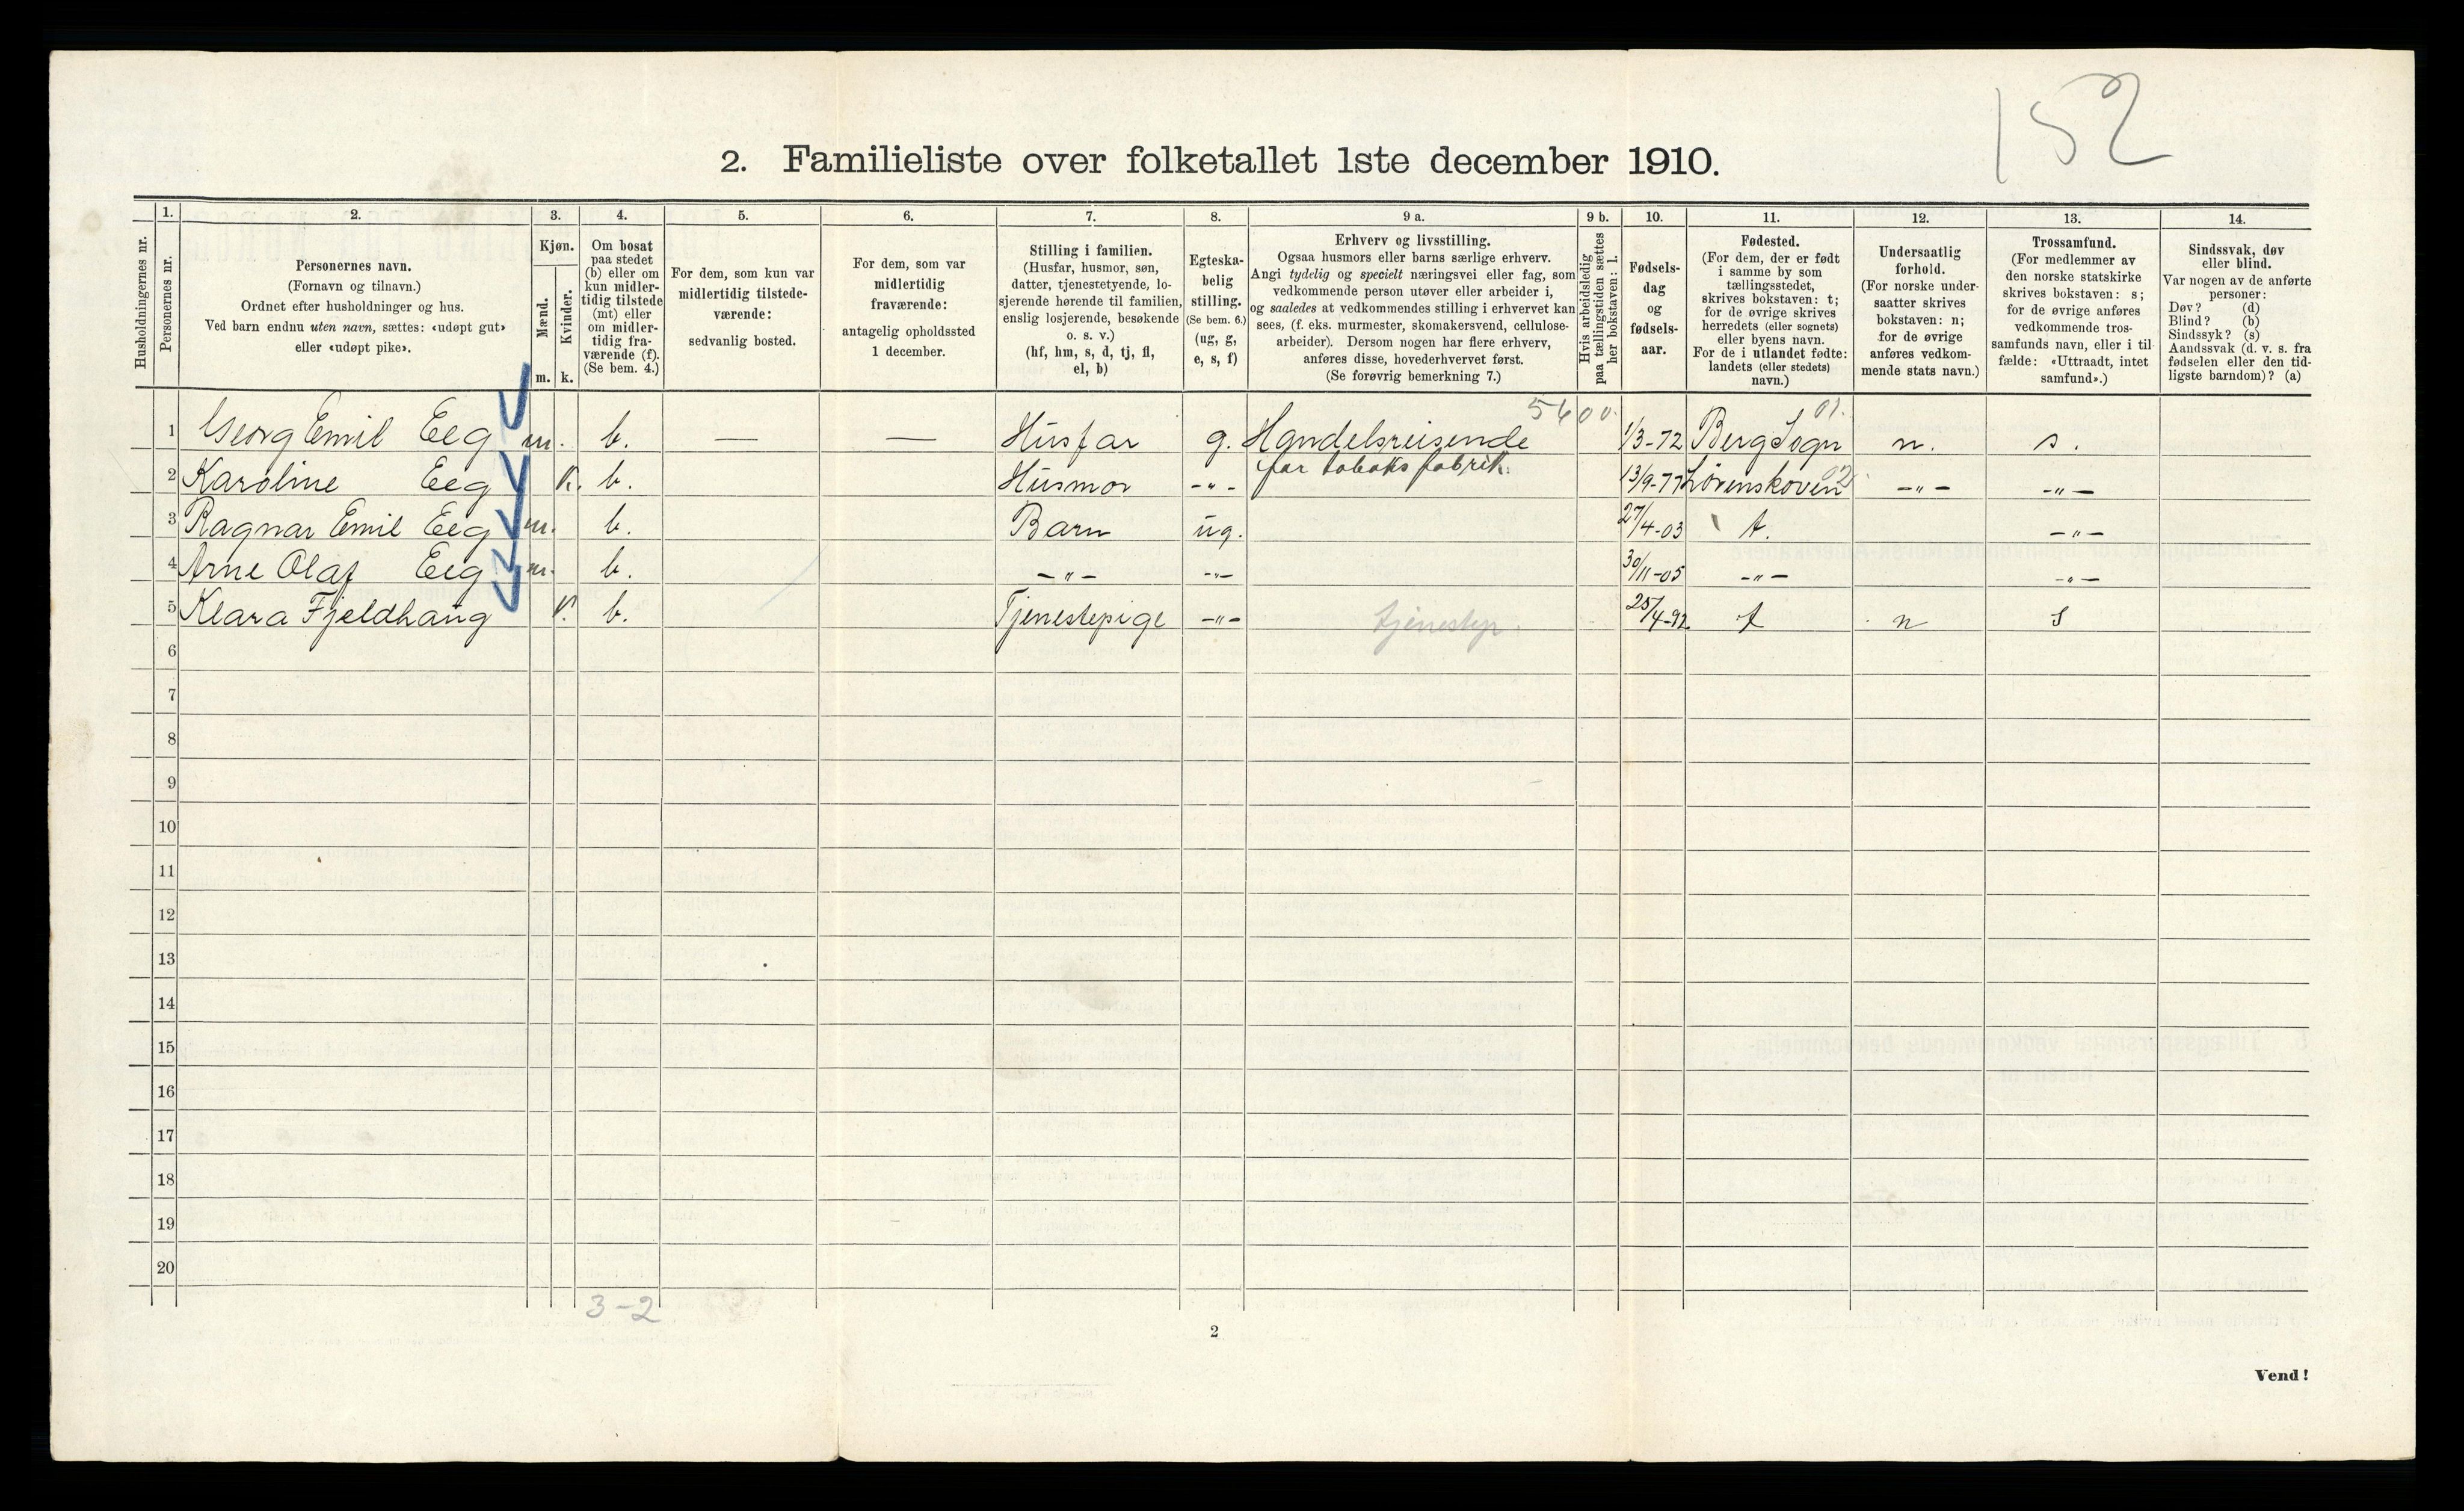 152
2. Familieliste over folketallet 1ste december 1910.
Husholdningernes nr.
1.
Personernes nr.
2.
Personernes navn.
(Fornavn og tilnavn.)
Ordnet efter husholdninger og hus.
Ved barn endnu uten navn, sættes: «udøpt gut»
eller «udøpt pike».
3.
Kjøn.
Mænd.
m.
Kvinder.
k.
4.
Om bosat
paa stedet
(b) eller om
kun midler-
tidig tilstede
(mt) eller
om midler-
tidig fra-
værende (f).
(Se bem. 4.)
5.
For dem, som kun var
midlertidig tilstede-
værende:
sedvanlig bosted.
6.
For dem, som var
midlertidig
fraværende:
antagelig opholdssted
1 december.
7.
Stilling i familien.
(Husfar, husmor, søn,
datter, tjenestetyende, lo-
sjerende hørende til familien,
enslig losjerende, besøkende
o. s. v.)
(hf, hm, s, d, tj, fl,
el, b)
8.
Egteska-
belig
stilling.
(Se bem. 6.)
(ug, g,
e, s, f)
9 a.
Erhverv og livsstilling.
Ogsaa husmors eller barns særlige erhverv.
Angi tydelig og specielt næringsvei eller fag, som
vedkommende person utøver eller arbeider i,
og saaledes at vedkommendes stilling i erhvervet kan
sees, (f. eks. murmester, skomakersvend, cellulose-
arbeider). Dersom nogen har flere erhverv,
anføres disse, hovederhvervet først.
(Se forøvrig bemerkning 7.)
9 b.
Hvis arbeidsledig
paa tællingstiden sættes
her bokstaven: l.
10.
Fødsels-
dag
og
fødsels-
aar.
11.
Fødested.
(For dem, der er født
i samme by som
tællingsstedet,
skrives bokstaven: t;
for de øvrige skrives
herredets (eller sognets)
eller byens navn.
For de i utlandet fødte:
landets (eller stedets)
navn.)
12.
Undersaatlig
forhold.
(For norske under-
saatter skrives
bokstaven: n;
for de øvrige
anføres vedkom-
mende stats navn.)
13.
Trossamfund.
(For medlemmer av
den norske statskirke
skrives bokstaven: s;
for de øvrige anføres
vedkommende tros-
samfunds navn, eller i til-
fælde: «Uttraadt, intet
samfund».)
14.
Sindssvak, døv
eller blind.
Var nogen av de anførte
personer:
Døv? (d)
Blind? (b)
Sindssyk? (s)
Aandssvak (d. v. s. fra
fødselen eller den tid-
ligste barndom)? (a)
5600. 01.
1 Georg Emil Eeg m. b. — — Husfar g. Handelsreisende 1/3-72 Berg Sogn n. s.
for tobaks fabrik.
2 Karoline Eeg K. b. Husmor -"- 13/9-77 Lørenskoven 02 -"- -"-
3 Ragnar Emil Eeg m. b. Barn ug. 27/4-03 t. -"-
4 Arne Olaf Eeg m. b. -"- -"- 30/11-05 -"- -"-
5 Klara Fjeldhaug K. b. Tjenestepige -"- tjenestep. 25/4-92 t n s
6
7
8
9
10
11
12
13
14
15
16
17
18
19
20
3-2
2
Vend!